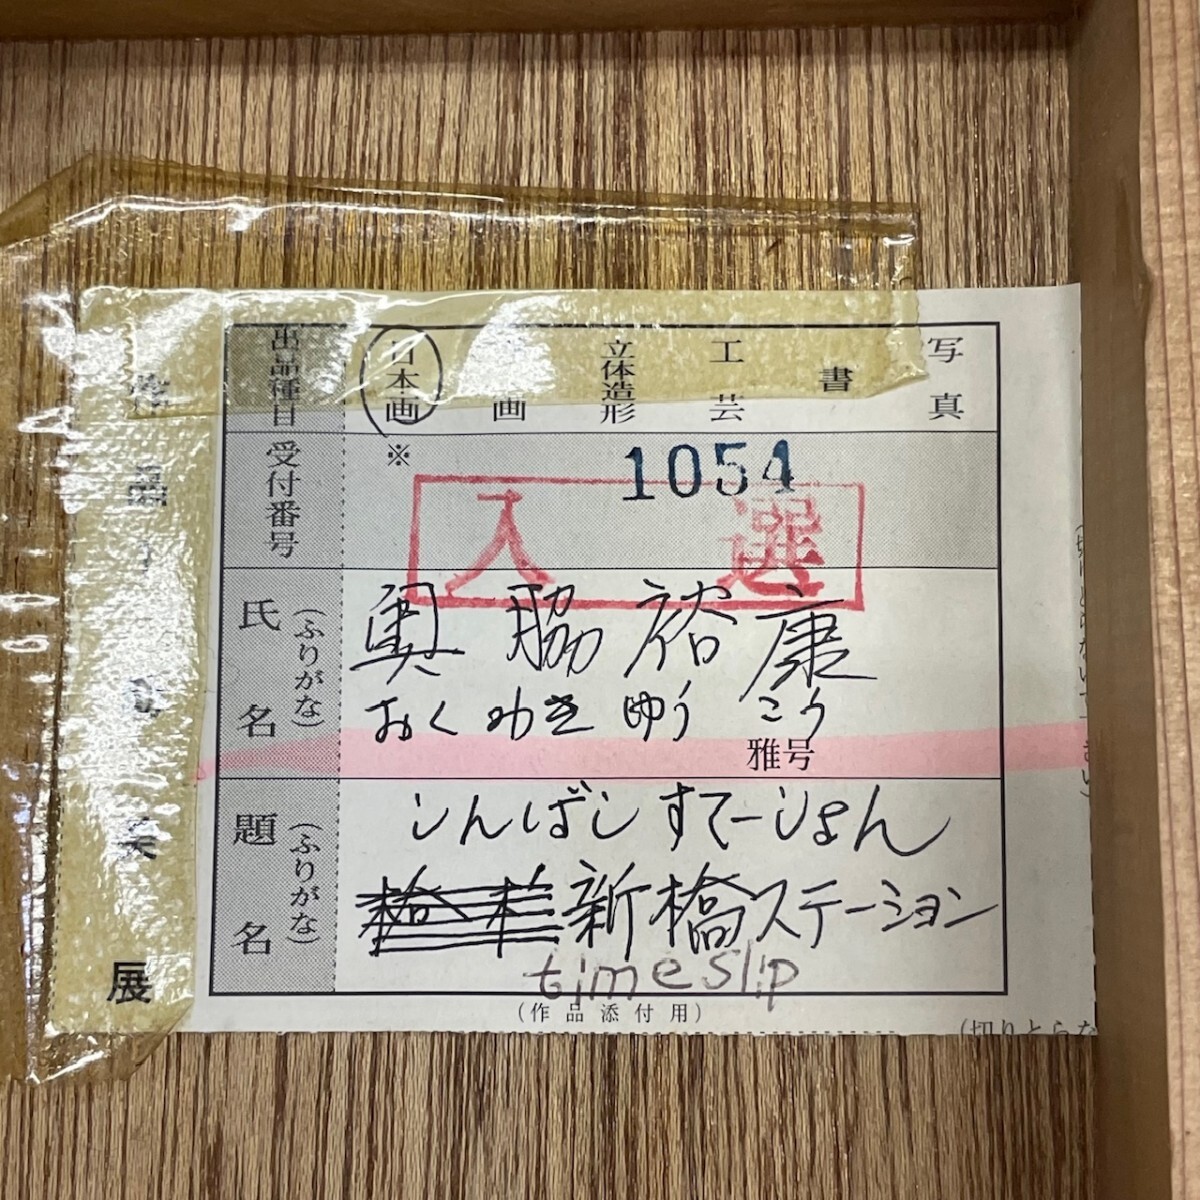 出品種目
日本画
画
立体造形
工芸
書
写真
受付番号
※
1054
入選
氏名
(ふりがな)
奥脇裕康
おくわき ゆうこう
雅号
題名
(ふりがな)
しんばし すてーしょん
新橋ステーション
timeslip
(作品添付用)
(切りとらな
展